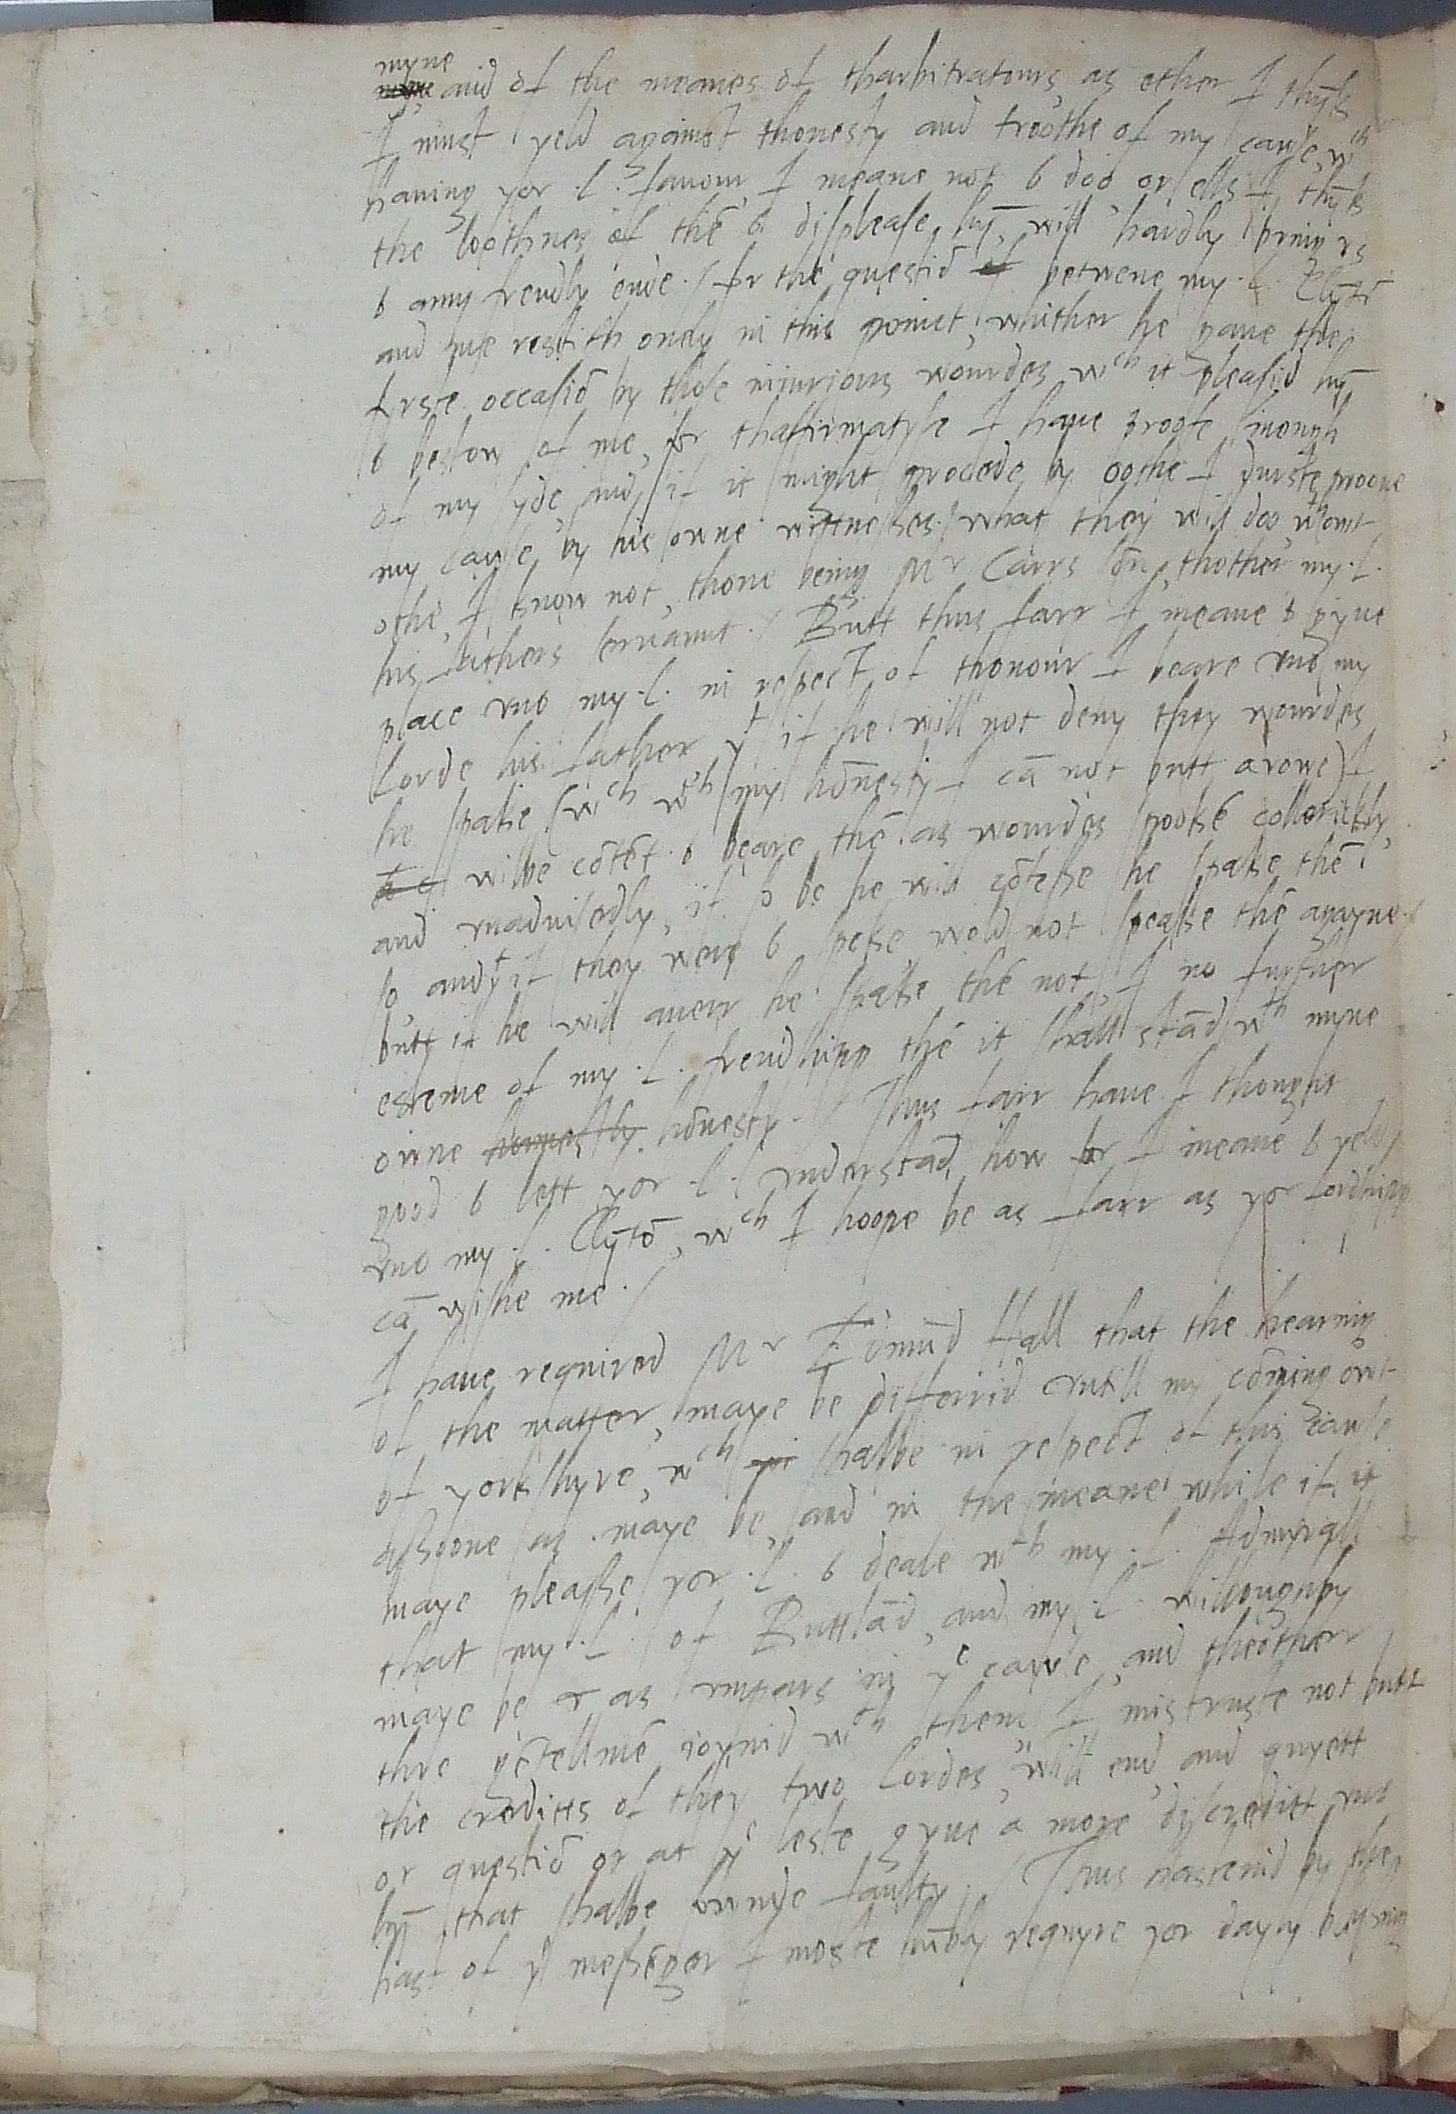 myne
and of the meanes of tharbitratours, as ether I thyk
I must yeld against thonesty and troothe of my cause, wch
having yor .L. favour I meane not to doo or ells I thyk
the loothnes of thē to displease hȳ, will hardly bring vs
to anny frendly ende ./ for the questiō of betwene my .L. Clytō
and me restith onely in this poinct, whither he gaue the
firste occasiō by those iniurious wourdes wch it pleasid hȳ
to bestow of me, for thaffirmatyfe I haue proofe inough
of my syde and if it might procede by oothe I durste prooue
my cause by his owne wittnesses / what they will doo wthout
othe, I know not, thone being Mr Carrs sōn, thother my .L.
his fathers servaunt ./ Butt thus farr I meane to gyue
place vnto my .L. in respect of thonour I beare vnto my
Lorde his father yt if he will not deny they wourdes
he spake (wch wth my hōnesty I cā not butt avowe) I
wilbe cōtēt to beare thē as wourdes spookē collorickly,
and vnaduisedly, if so be he will cōfesse he spake thē
so, and yt if they wer to speke wold not speake thē agayne ./
butt if he will averr he spake thē not, I no further
esteme of my .L. frendshipp thē it shall stād wth myne
owne honnestly hōnesty ./ Thus farr haue I thought
good to lett yor .L. vnderstād, how far I meane to yeld
vnto my .L. Clytō, wch I hoope be as farr as yor Lordshipp
cā wishe me ./
I haue required Mr Edmūd Hall that the hearing
of the matter, maye be differrid vntill my cōming out
of yorkshyre, wch shalbe in respect of this cause
assoone as maye be, and in the meane while if it
maye please yor .L. to deale wth my .L. Admyrall
that my .L. of Buttlād, and my .L. willoughby
maye be as vmpars in ye cause, and theother
thre gētellmē ioynid wth them, I mistruste not butt
the creditts of they two Lordes, will end and quyett
or questiō or at ye leste gyue a more discreditt vnto
hȳ that shalbe founde faulty ./ Thus hastenid by the
hast of ye messēger I moste hūbly requyre yor dayly blessing